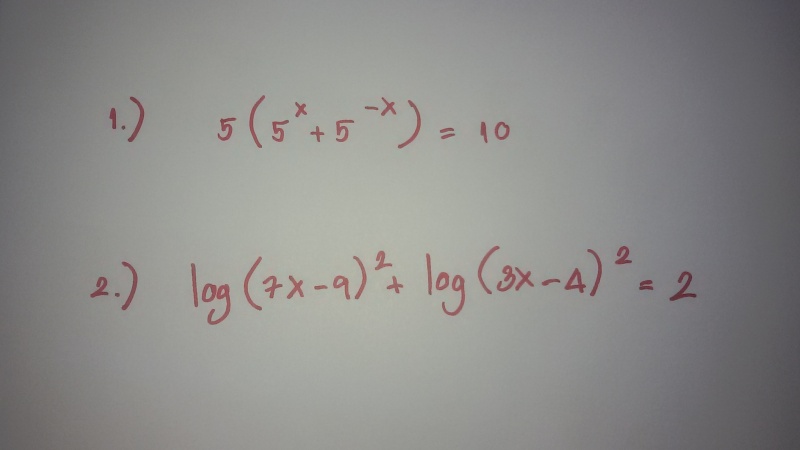 1.) 5(5^x + 5^-x) = 10
2.) log(7x-9)^2 + log(3x-4)^2 = 2